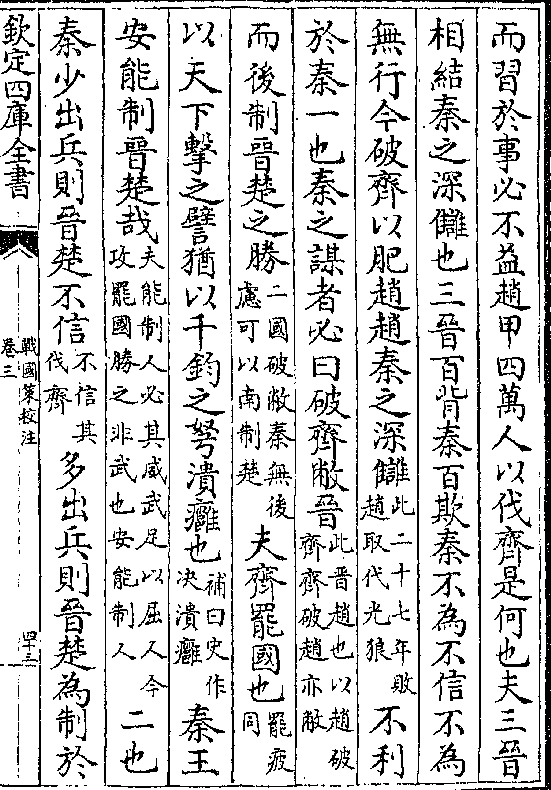 而習於事必不益趙甲四萬人以伐齊是何也夫三晉
相結秦之深讎也三晉百背秦百欺秦不為不信不為
無行今破齊以肥趙趙秦之深讎此二十七年敗趙取代光狼不利
於秦一也秦之謀者必曰破齊敝晉此晉趙也以趙破齊齊破趙亦敝
而後制晉楚之勝二國破敝秦無後慮可以南制楚夫齊罷國也罷疲同
以天下擊之譬猶以千鈞之弩潰癰也補曰史作决潰癰秦王
安能制晉楚哉夫能制人必其威武足以屈人今攻罷國勝之非武也安能制人二也
秦少出兵則晉楚不信不信其伐齊多出兵則晉楚為制於
欽定四庫全書
戰國策校注
卷三
四十三